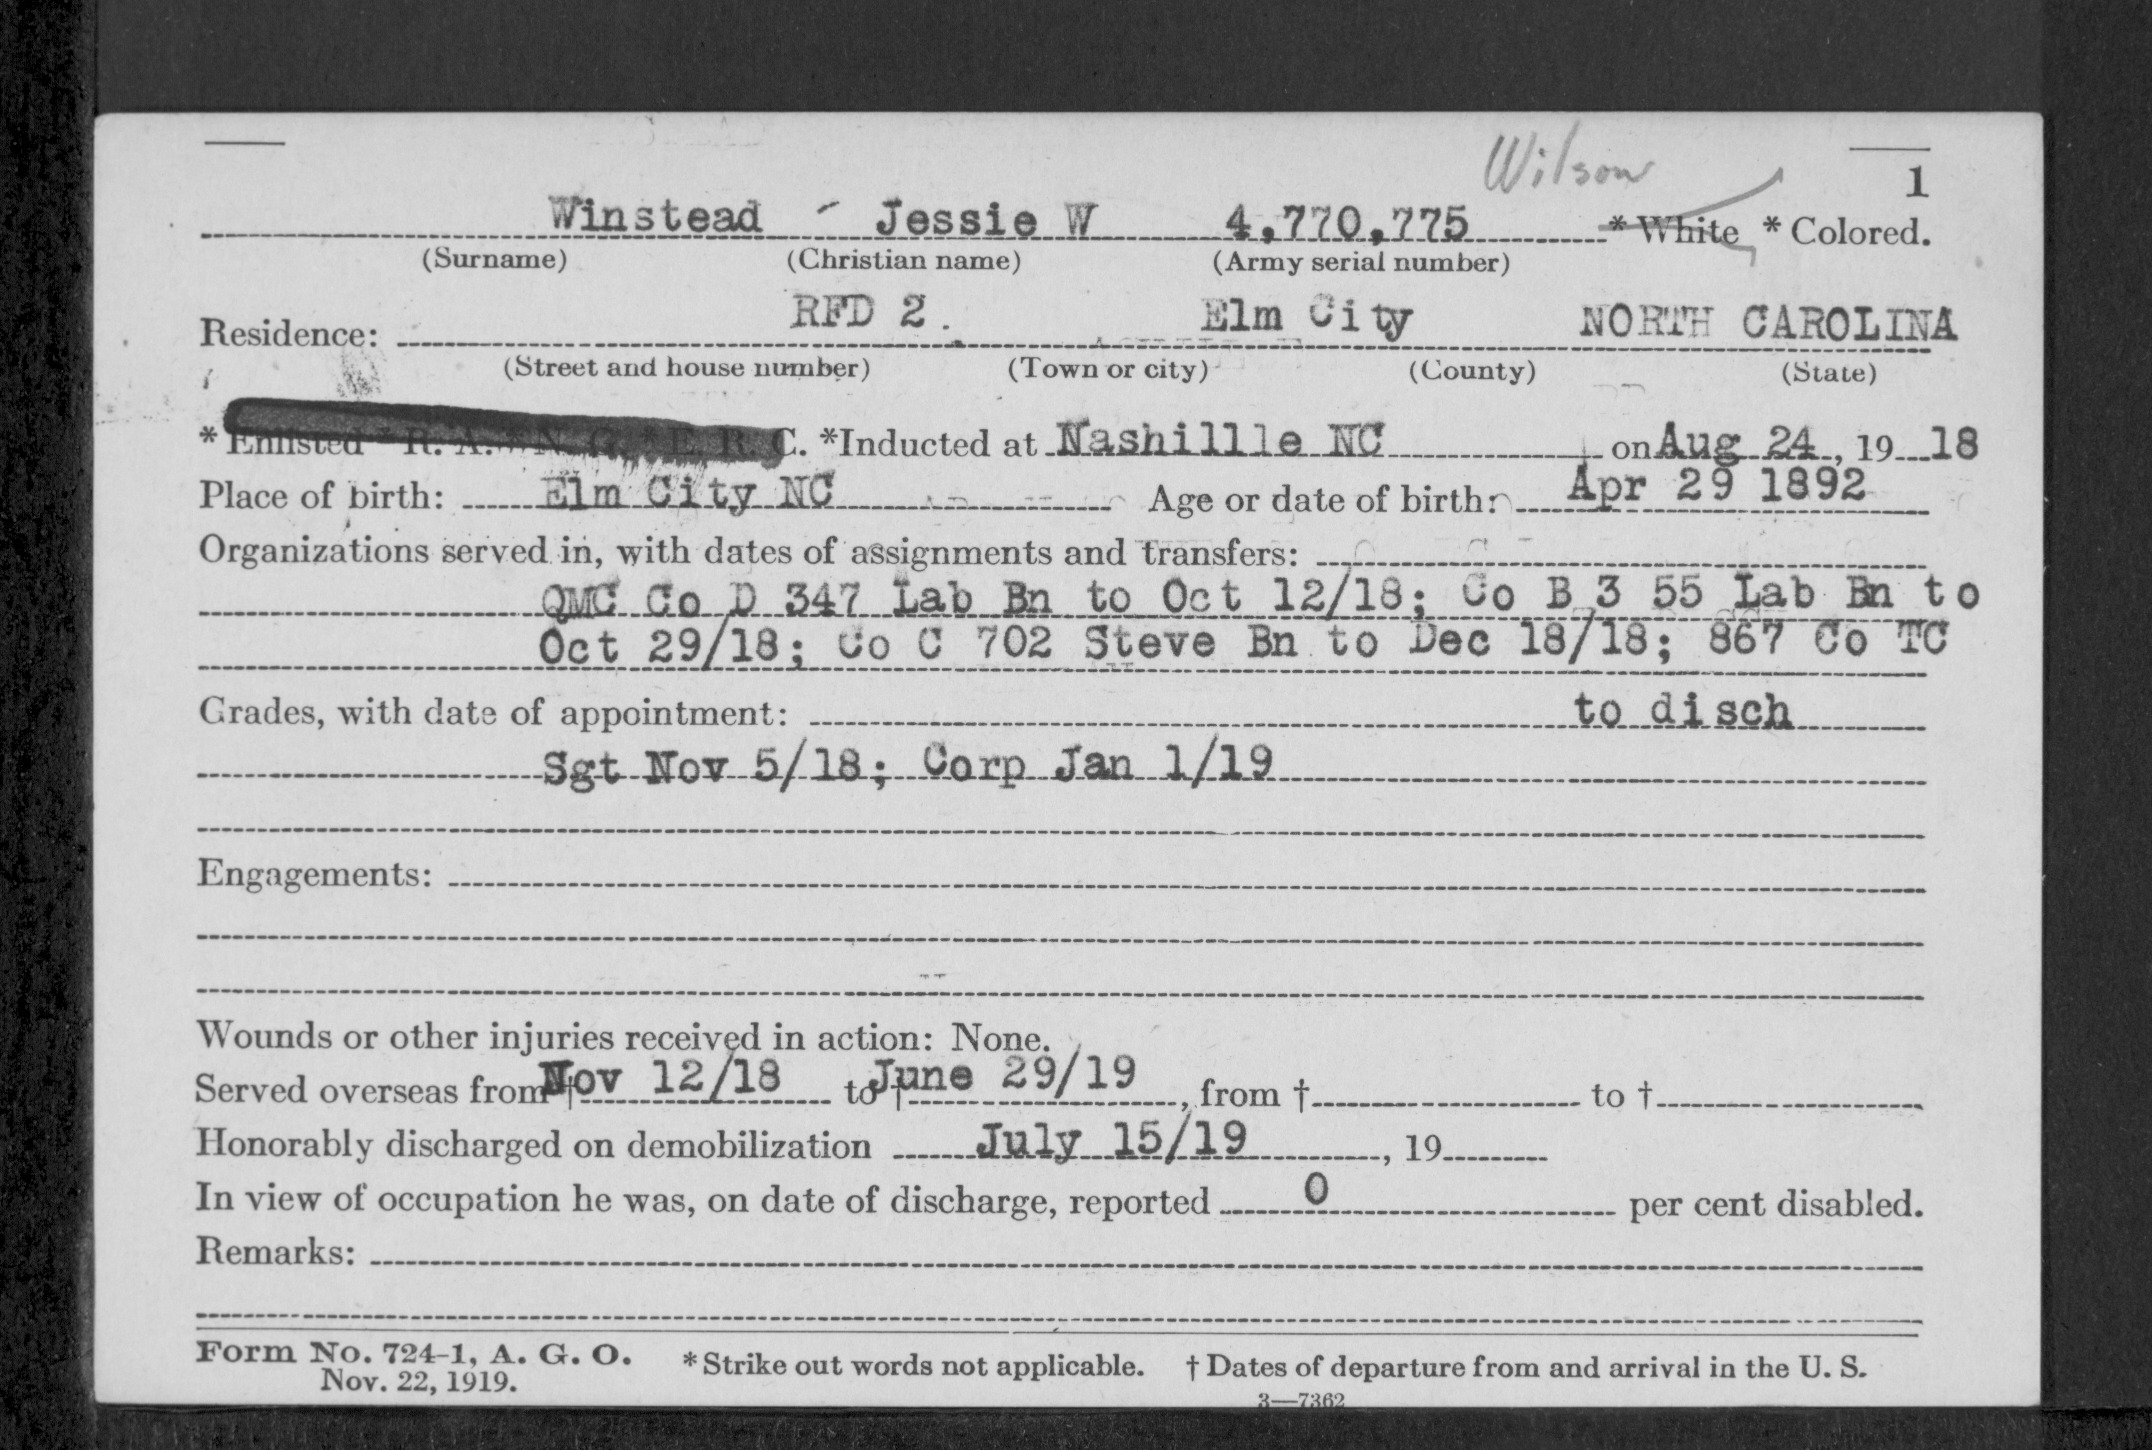 Wilson
1
Winstead - Jessie W 4,770,775 * White * Colored.
(Surname) (Christian name) (Army serial number)
RFD 2. Elm City NORTH CAROLINA
Residence:
(Street and house number) (Town or city) (County) (State)
* Enlisted * R. A. * N. G. * E. R. C. *Inducted at Nashillle NC on Aug 24, 1918
Place of birth: Elm City NC Age or date of birth: Apr 29 1892
Organizations served in, with dates of assignments and transfers:
QMC Co D 347 Lab Bn to Oct 12/18; Co B 3 55 Lab Bn to
Oct 29/18; Co C 702 Steve Bn to Dec 18/18; 867 Co TC
Grades, with date of appointment: to disch
Sgt Nov 5/18; Corp Jan 1/19
Engagements:
Wounds or other injuries received in action: None.
Served overseas from † Nov 12/18 to † June 29/19, from † to †
Honorably discharged on demobilization July 15/19, 19
In view of occupation he was, on date of discharge, reported 0 per cent disabled.
Remarks:
Form No. 724-1, A. G. O. * Strike out words not applicable. † Dates of departure from and arrival in the U. S.
Nov. 22, 1919.
3—7362